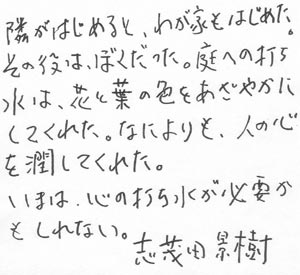 隣がはじめると、わが家もはじめた。
その役は、ぼくだった。庭への打ち
水は、花と葉の色をあざやかに
してくれた。なによりも、人の心
を潤してくれた。
いまは、心の打ち水が必要か
もしれない。
志茂田景樹